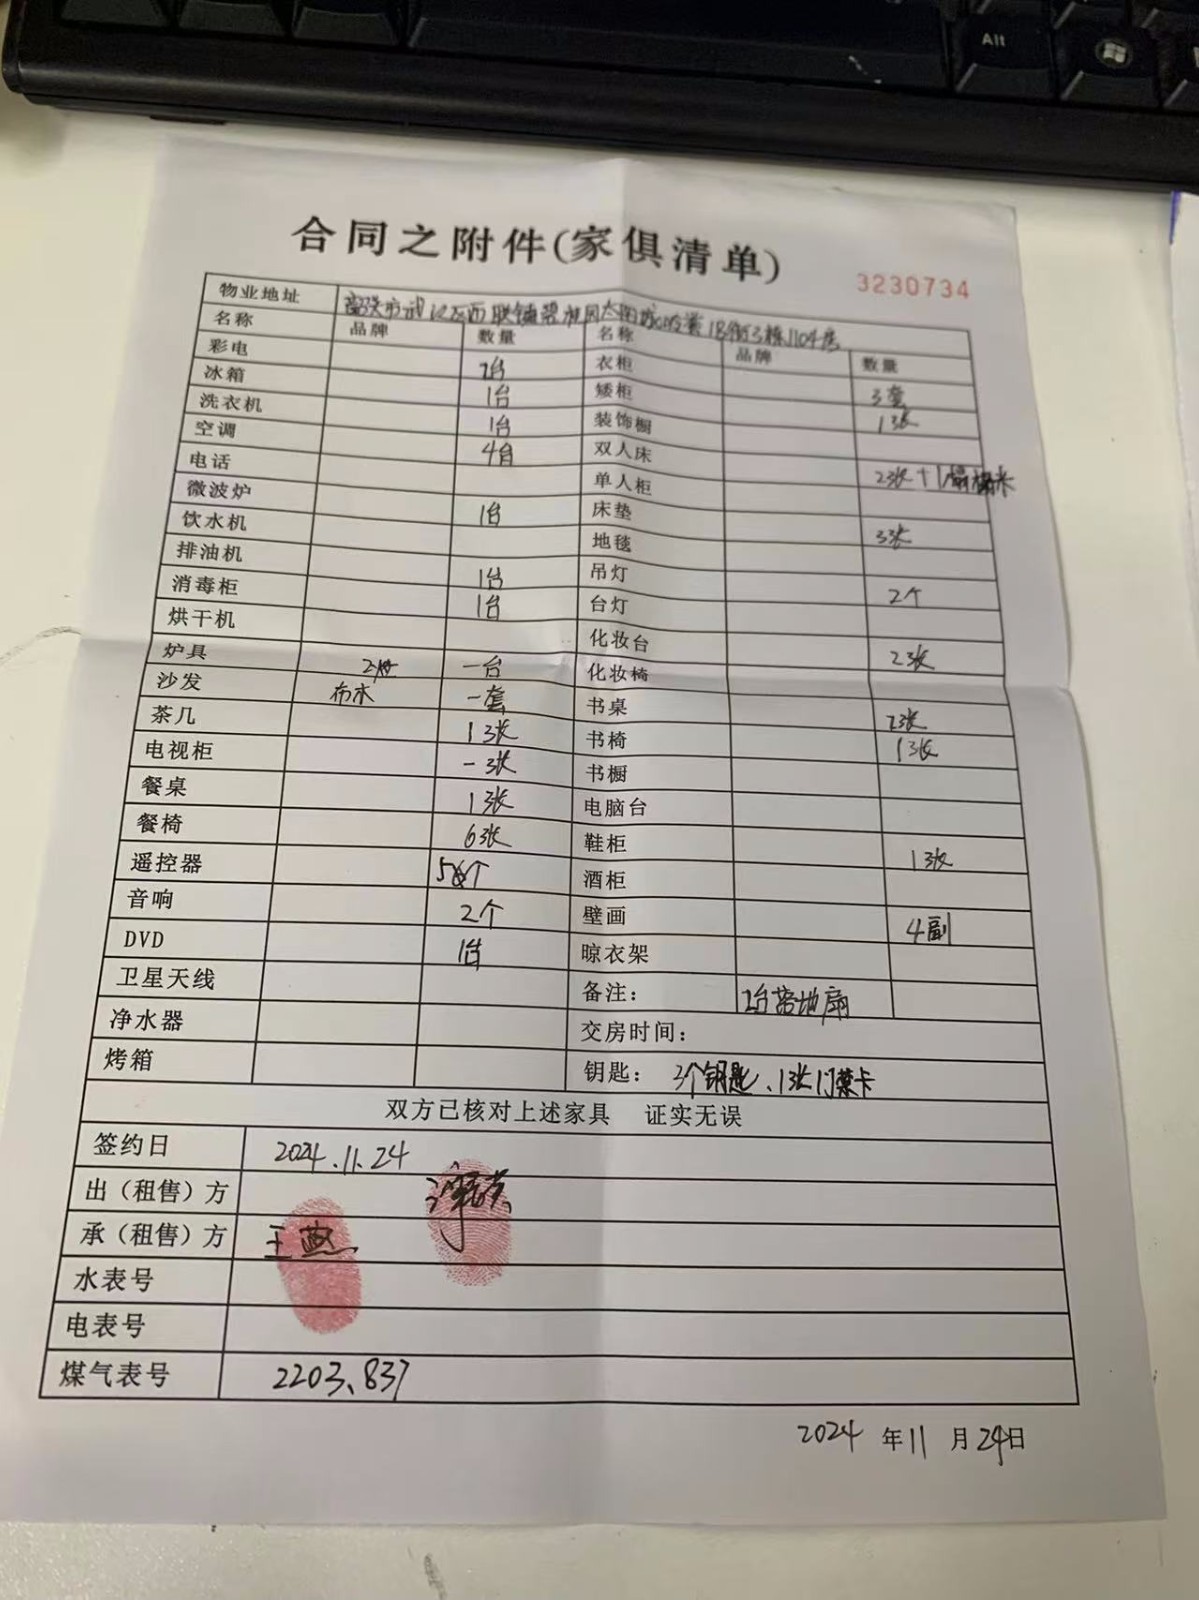 Alt
合同之附件(家俱清单)
3230734
物业地址 18街3栋1104房
名称 品牌 数量 名称 品牌 数量
彩电 台 衣柜 3套
冰箱 1台 矮柜 1张
洗衣机 1台 装饰橱
空调 4台 双人床 2张+1
电话 单人柜
微波炉 1台 床垫 3张
饮水机 地毯
排油机 1台 吊灯 2个
消毒柜 1台 台灯
烘干机 化妆台 2张
炉具 一台 化妆椅
沙发 布木 一套 书桌 2张
茶几 1张 书椅 1张
电视柜 一张 书橱
餐桌 1张 电脑台
餐椅 6张 鞋柜 1张
遥控器 5个 酒柜
音响 2个 壁画 4副
DVD 1台 晾衣架
卫星天线 备注: 地扇
净水器 交房时间:
烤箱 钥匙: 3个钥匙、1张门禁卡
双方已核对上述家具 证实无误
签约日 2024.11.24
出（租售）方
承（租售）方 王
水表号
电表号
煤气表号 2203.837
2024 年 11 月 24 日